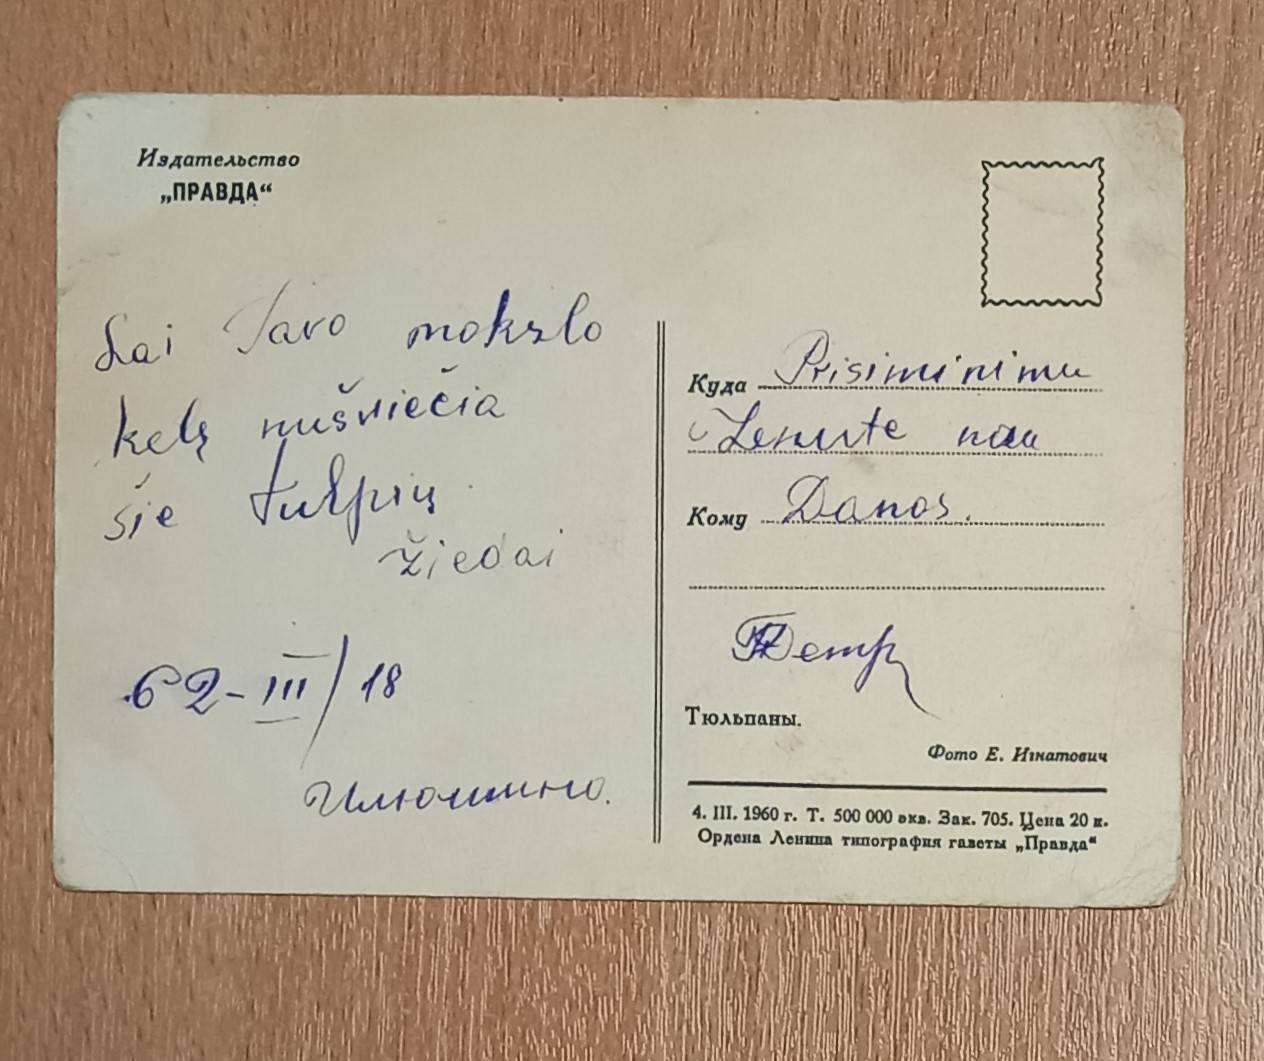 Издательство
„ПРАВДА“
Lai Tavo mokslo
kelį nušviečia
šie tulpių
žiedai
62-III/18
Илюшино.
Куда Prisiminimu
Zenute nuu
Кому Danos.
Тюльпаны.
Фото Е. Игнатович
4. III. 1960 г. Т. 500 000 экз. Зак. 705. Цена 20 к.
Ордена Ленина типография газеты „Правда“